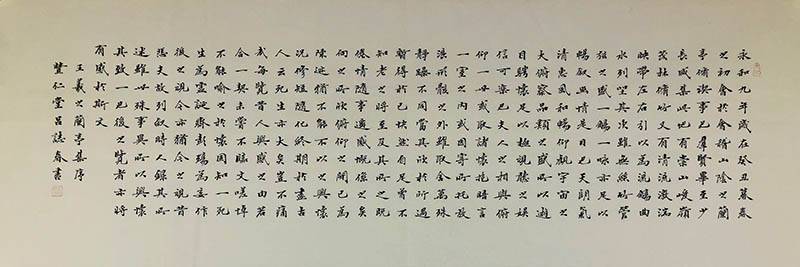 永和九年歲在癸丑暮春
之初會於會稽山陰之蘭
亭脩禊事也羣賢畢至少
長咸集此地有崇山峻嶺
茂林脩竹又有清流激湍
映帶左右引以為流觴曲
水列坐其次雖無絲竹管
弦之盛一觴一詠亦足以
暢敘幽情是日也天朗氣
清惠風和暢仰觀宇宙之
大俯察品類之盛所以遊
目騁懷足以極視聽之娛
信可樂也夫人之相與俯
仰一世或取諸懷抱晤言
一室之內或因寄所託放
浪形骸之外雖取舍萬殊
靜躁不同當其欣於所遇
暫得於己快然自足曾不
知老之將至及其所之既
倦情隨事遷感慨係之矣
向之所欣俯仰之間已為
陳迹猶不能不以之興懷
況修短隨化終期於盡古
人云死生亦大矣豈不痛
哉每覽昔人興感之由若
合一契未嘗不臨文嗟悼
不能喻之於懷固知一死
生為虛誕齊彭殤為妄作
後之視今亦猶今之視昔
悲夫故列敘時人錄其所
述雖世殊事異所以興懷
其致一也後之覽者亦將
有感於斯文
王羲之蘭亭集序
仁堂呂誌春書